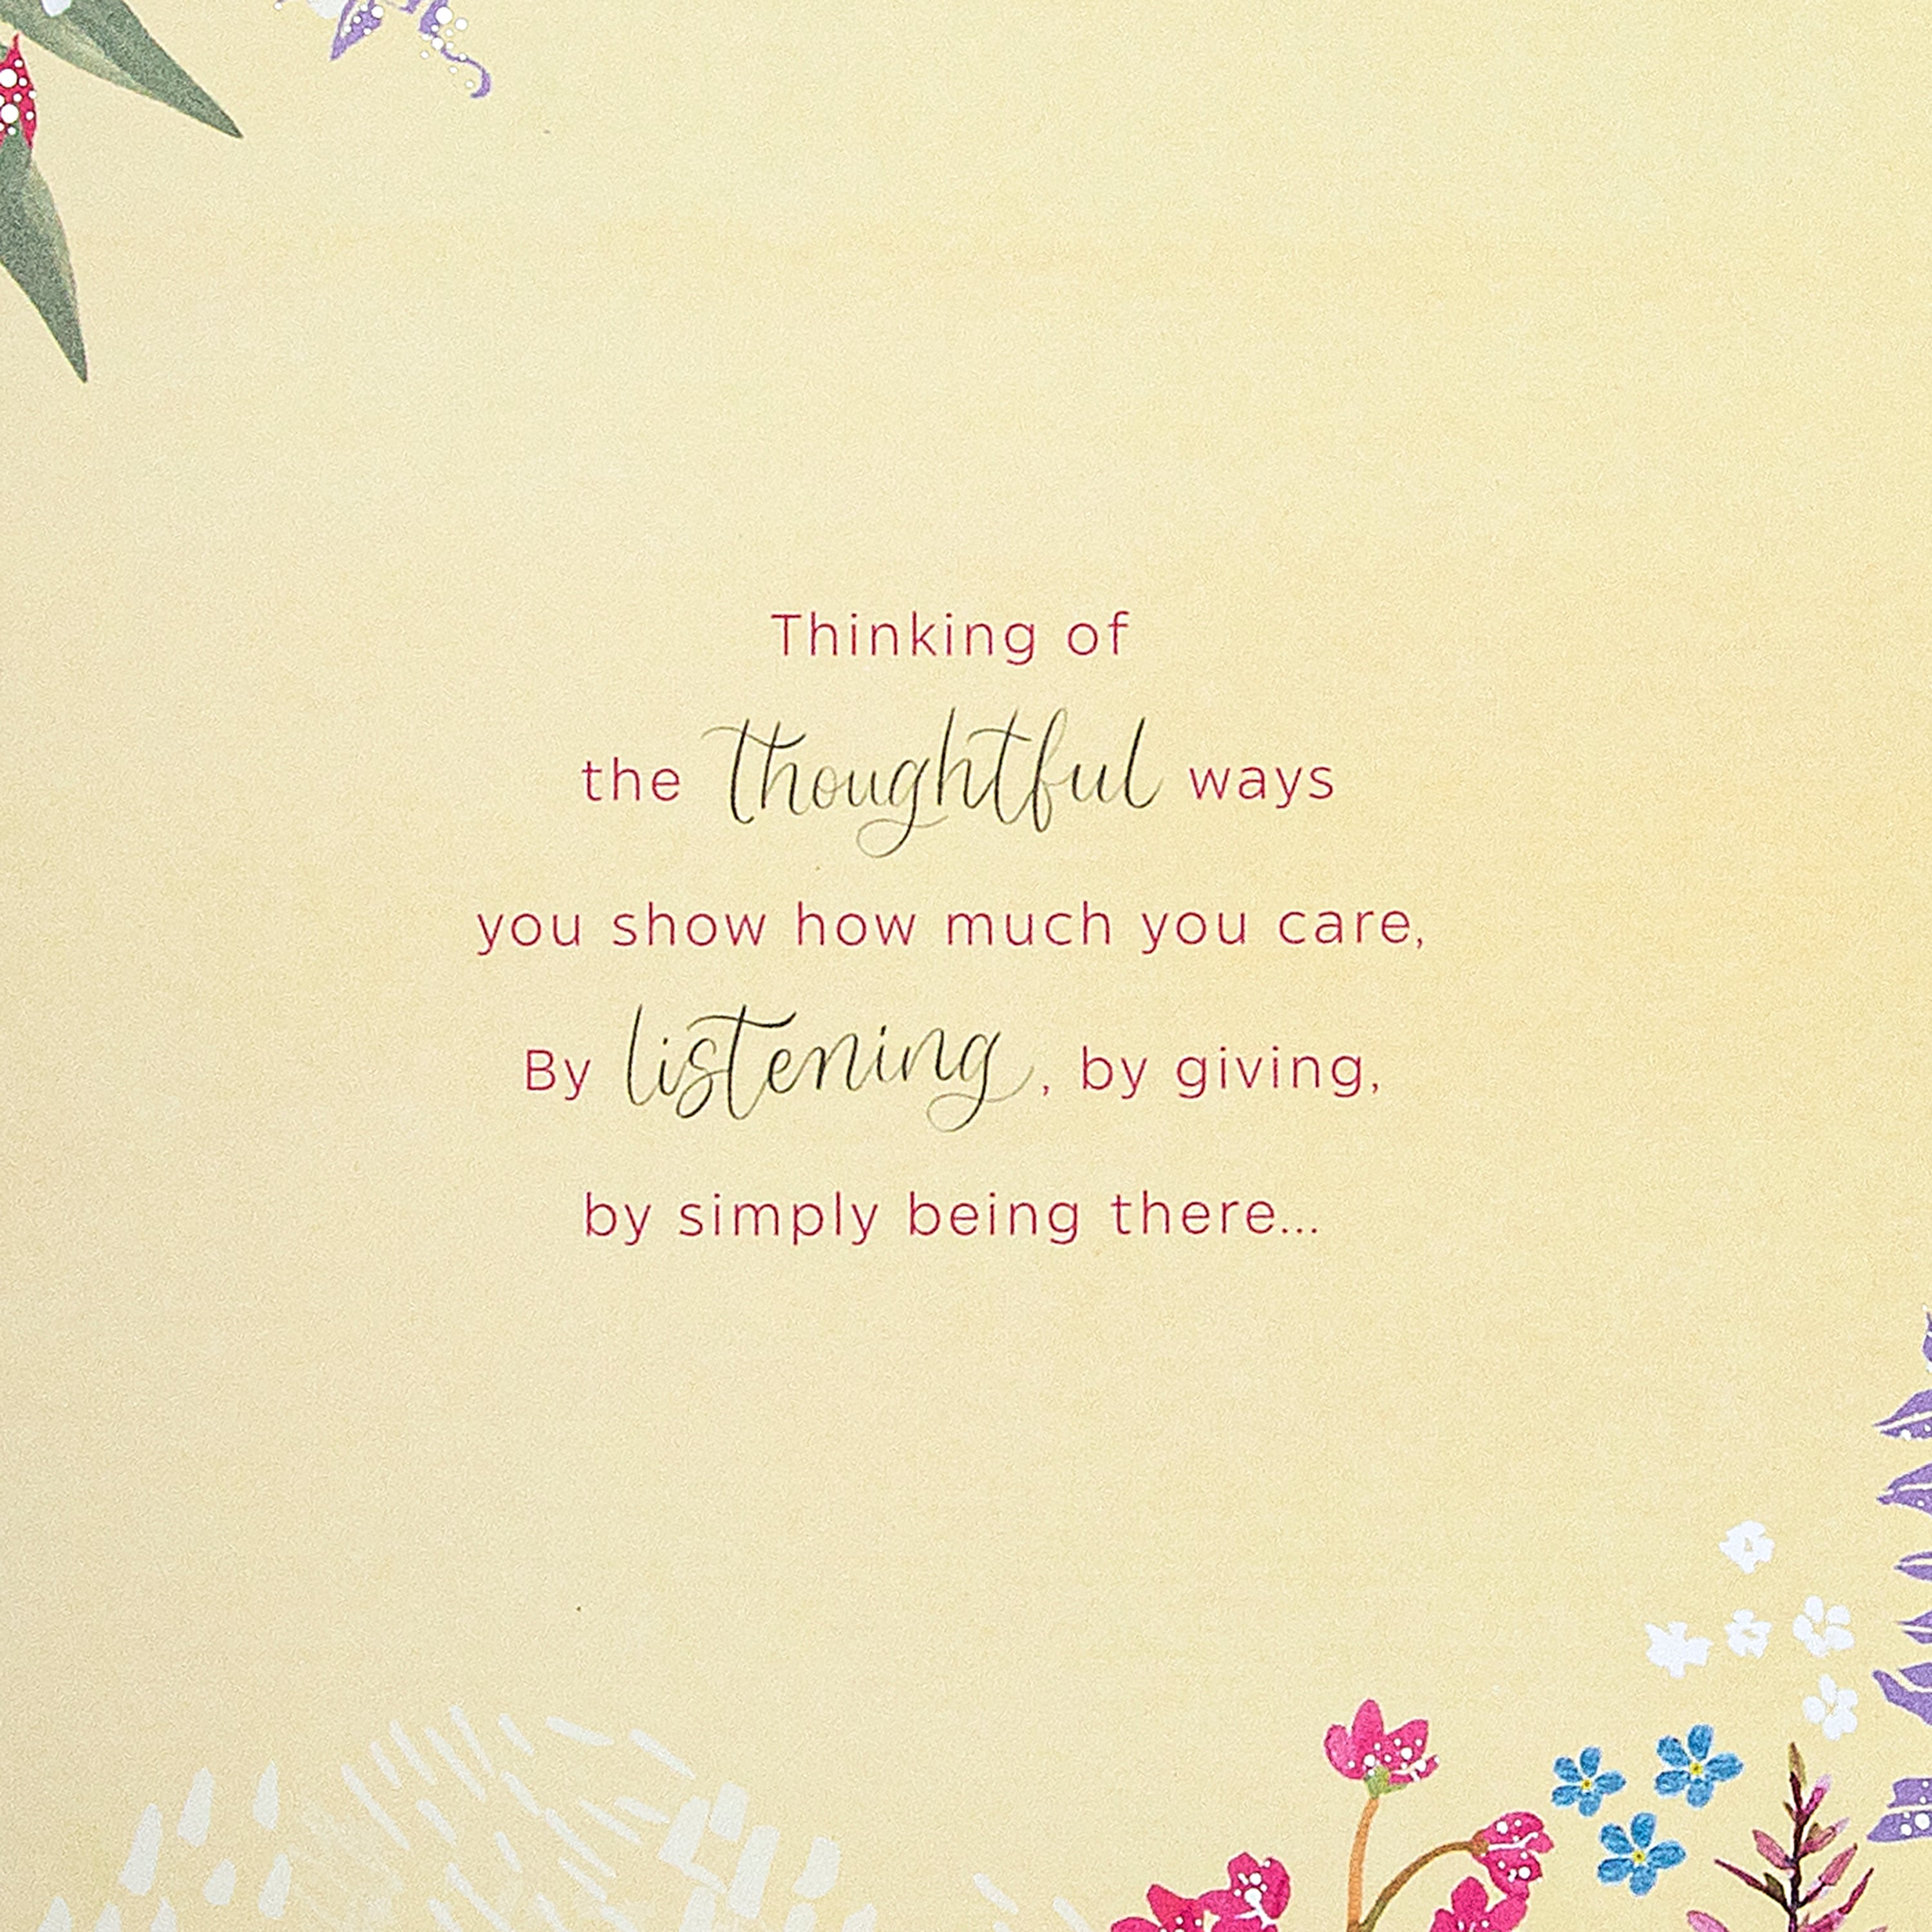 Thinking of
the thoughtful ways
you show how much you care,
By listening, by giving,
by simply being there...